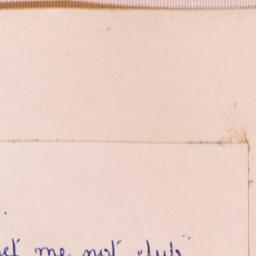 me not club"